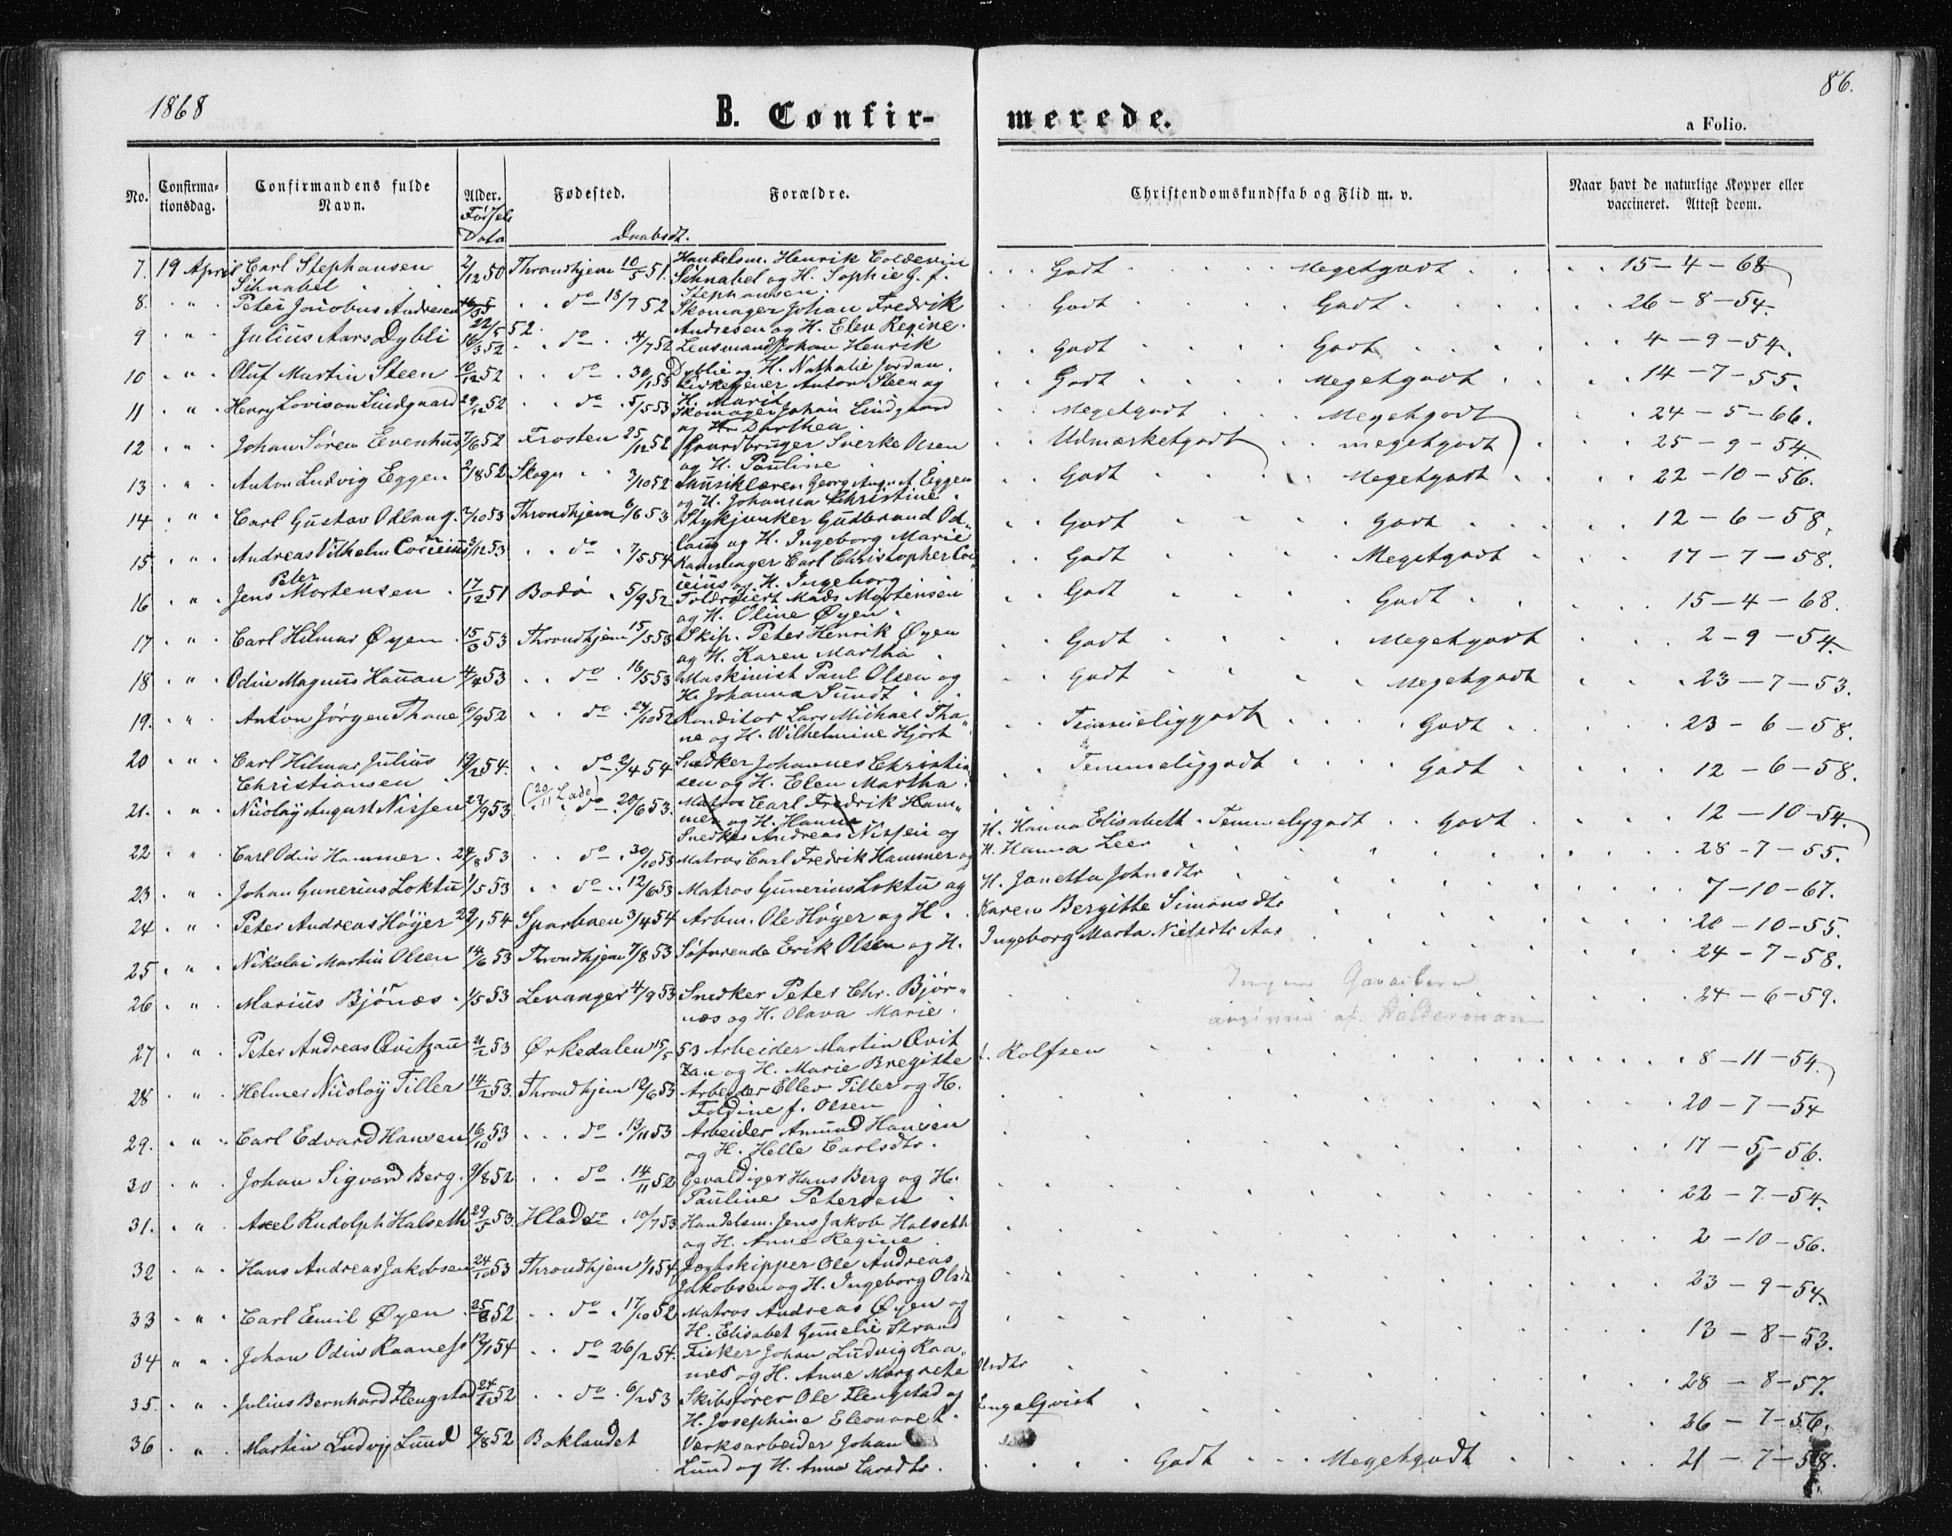 1868
86.
B. Confir- merede.
a Folio.
No. Confirma-tionsdag. Confirmandens fulde Navn. Alder. Fødsels Data Fødested. Daabsdt. Forældre. Christendomskundskab og Flid m. v. Naar havt de naturlige Kopper eller vaccineret. Attest derom.
7. 19 April Carl Stephansen 2/12 50 Throndhjem 10/5 51 Handelsm. Henrik Coldevin Godt Megetgodt 15-4-68
Schnabel Schnabel og H. Sophie G. f. Stephansen.
8. " " Peter Jacobus Andresen 22/5 52 do 18/7 52 Skomager Johan Fredrik Godt Godt 26-8-54.
Andresen og H. Elen Regine.
9 " " Julius Aars Dybli 16/3 52 do 4/7 52 Lensmand Johan Henrik Godt Godt 4-9-54.
Dyblie og H. Nathalie Jordan.
10 " " Oluf Martin Steen 10/12 52 do 30/1 53 Kirketjener Anton Steen og Godt Megetgodt 14-7-55.
H. Marit
11 " " Henry Lovison Lindgaard 29/1 52 do 5/5 53 Skomager Johan Lindgaard Megetgodt Megetgodt 24-5-66.
og H. Dorthea.
12 " " Johan Sören Evenhus 7/6 52 Frosten 25/12 52 Gaardbruger Sverke Olsen Udmærketgodt megetgodt 25-9-54
og H. Pauline
13 " " Anton Ludvig Eggen 2/8 52 Skogn 3/10 52 Musiklærer Georg August Eggen Godt Megetgodt 22-10-56.
og H. Johanna Christine.
14 " " Carl Gustav Odlaug. 2/10 53 Throndhjem 6/6 53 Stykjunker Gudbrand Od- Godt Godt 12-6-58.
laug og H. Ingeborg Marie
15 " " Andreas Vilhelm Cocieius 3/12 53 do 7/5 54 Kammager Carl Christopher Co- Godt Megetgodt 17-7-58.
cieius og H. Ingeborg
16 " " Jens Peter Mortensen 17/12 51 Bodö 5/9 52 Toldrojert Mads Mortensen Godt Godt 15-4-68.
og H. Oline Øyen.
17 " " Carl Hilmar Øyen 15/3 53 Throndhjem 15/5 53 Skip. Peter Henrik Øyen Godt Megetgodt 2-9-54.
og H. Karen Martha
18 " " Odin Magnus Hauan 4/4 53 do 16/5 53 Maskinist Paul Olsen og Godt Megetgodt 23-7-53.
H. Johanna Sundt
19. " " Anton Jörgen Thane 6/9 52 do 24/10 52 Konditor Lars Michael Tha- Temmeliggodt Godt 23-6-58.
ne og H. Wilhelmine Hjort
20 " Carl Hilmar Julius 19/2 54. do 2/4 54 Snedker Johannes Christian- Temmeliggodt Godt 12-6-58.
Christiansen sen og H. Elen Martha.
21. " Nicolay August Nissen 27/9 53 (20/11 Lade) do 20/6 53. Matros Carl Fredrik Ham- H. Hanna Elisabeth Temmeligodt Godt 12-10-54.
mer og H. Hanna
Snedker Andreas Nissen og
22 " Carl Odin Hammer 24/8 53 do 30/10 53 Matros Carl Fredrik Hammer og H. Hanna Leer 28-7-55.
23 " " Johan Gunerius Loktu 1/5 53 do 12/6 53 Matros Gunerius Loktu og H. Janetta Johnsdtr 7-10-67.
24 " " Peter Andreas Höyer 29/1 54 Sparbuen 3/4 54 Arbm. Ole Höyer og H. Karen Bergitte Simonsdtr 28-10-55.
25 " " Nikolai Martin Olsen 14/6 53 Throndhjem 7/8 53 Söfarende Erik Olsen og H. Ingeborg Marta Nielsdtr Aas 24-7-58.
26 " " Marius Bjönæs 1/5 53 Levanger 4/9 53 Snedker Peter Chr. Björ- 24-6-59.
næs og H. Olava Marie
27 " " Peter Andreas Qvitzau 21/2 53 Ørkedalen 15/5 53 Arbeider Martin Qvit- f. Rolfsen 8-11-54.
zau og H. Marie Bregitte
28 " " Helmer Nicolay Tiller 14/2 53. Throndhjem 12/6 53 Arbeider Ellev Tiller og H. 20-7-54
Foldine f. Olsen
29. " " Carl Edvard Hansen 16/10 53 do 13/11 53 Arbeider Amund Hansen 17-5-56.
og H. Helle Carlsdtr.
30 " " Johan Sigvard Berg. 9/8 52 do 14/11 52 Gevaldiger Hans Berg og H. 22-7-54.
Pauline Petersen
31. " " Axel Rudolph Halseth 29/5 53. Hlade 10/7 53 Handelsm. Jens Jakob Halseth 2-10-56.
og H. Anne Regine
32 " " Hans Andreas Jakobsen 24/10 53 Throndhjem 1/1 54 Jægtskipper Ole Andreas 23-9-54.
Jakobsen og H. Ingeborg Olsdtr
33 " " Carl Emil Øyen 25/8 52 do 17/10 52 Matros Andreas Øyen og 13-8-53.
H. Elisabet Gunnelie Strand
34 " " Johan Odin Raaness 12/1 54 do 26/2 54. Fisker Johan Ludvig Raa-
næs og H. Anne Margrethe 28-8-57.
35. " " Julius Bernhard Flengstad 24/12 52 do 6/2 53 Skibsfører Ole Flengstad og Engelqvist 26-7-56.
H. Josephine Eleonore f.
36 " " Martin Ludvig Lund 2/8 52 Baklandet Værksarbeider Johan
Lund og H. Anne Larsdtr. Godt Megetgodt 21-7-58.